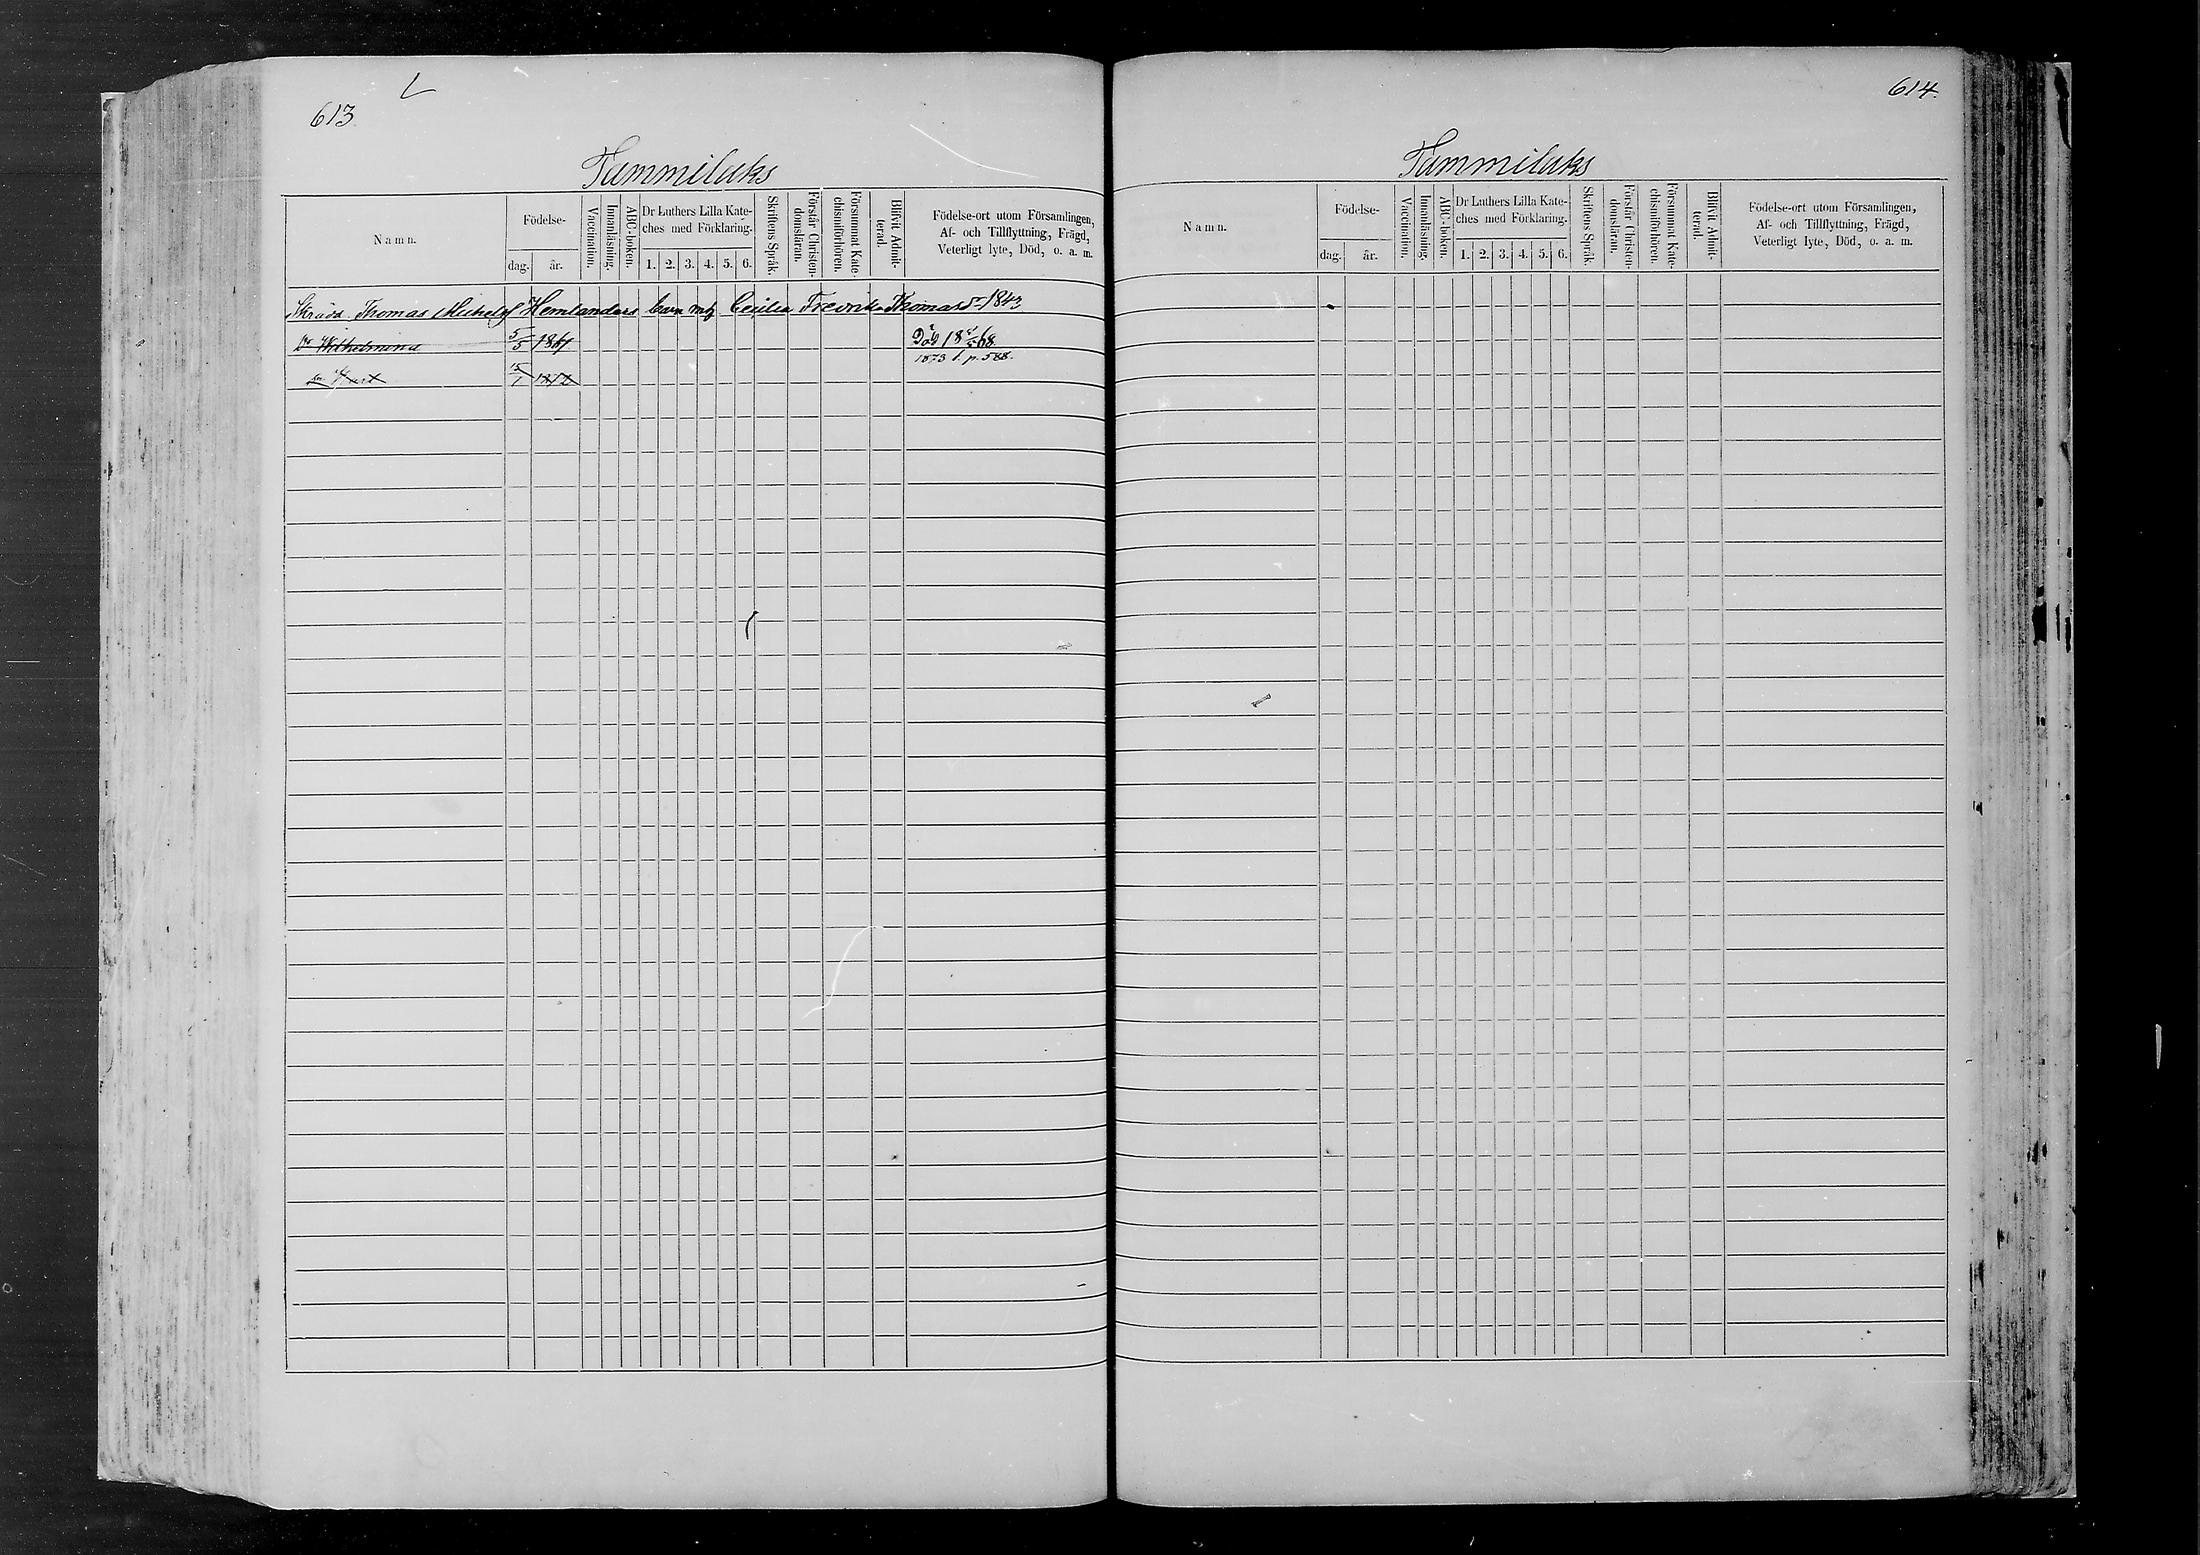 613
Tammilaks
Namn.
Födelse-
dag.
år.
Vaccination.
Innanläsning.
ABC-boken.
Dr Luthers Lilla Kate-
ches med Förklaring.
1. 2. 3. 4. 5. 6.
Skriftens Språk.
Förstår Christen-
domsläran.
Försummat Kate-
chismiförhören.
Blifvit Admit-
terad.
Födelse-ort utom Församlingen,
Af- och Tillflyttning, Frägd,
Veterligt lyte, Död, o. a. m.
Thomas Hemlanders barn mg Cecilia Fredrika Thomasdr 1843
Dr Wilhelmina 5/5 1861 Död
1873 l. p. 588.
614.
Tammilaks
Namn.
Födelse-
dag.
år.
Vaccination.
Innanläsning.
ABC-boken.
Dr Luthers Lilla Kate-
ches med Förklaring.
1. 2. 3. 4. 5. 6.
Skriftens Språk.
Förstår Christen-
domsläran.
Försummat Kate-
chismiförhören.
Blifvit Admit-
terad.
Födelse-ort utom Församlingen,
Af- och Tillflyttning, Frägd,
Veterligt lyte, Död, o. a. m.